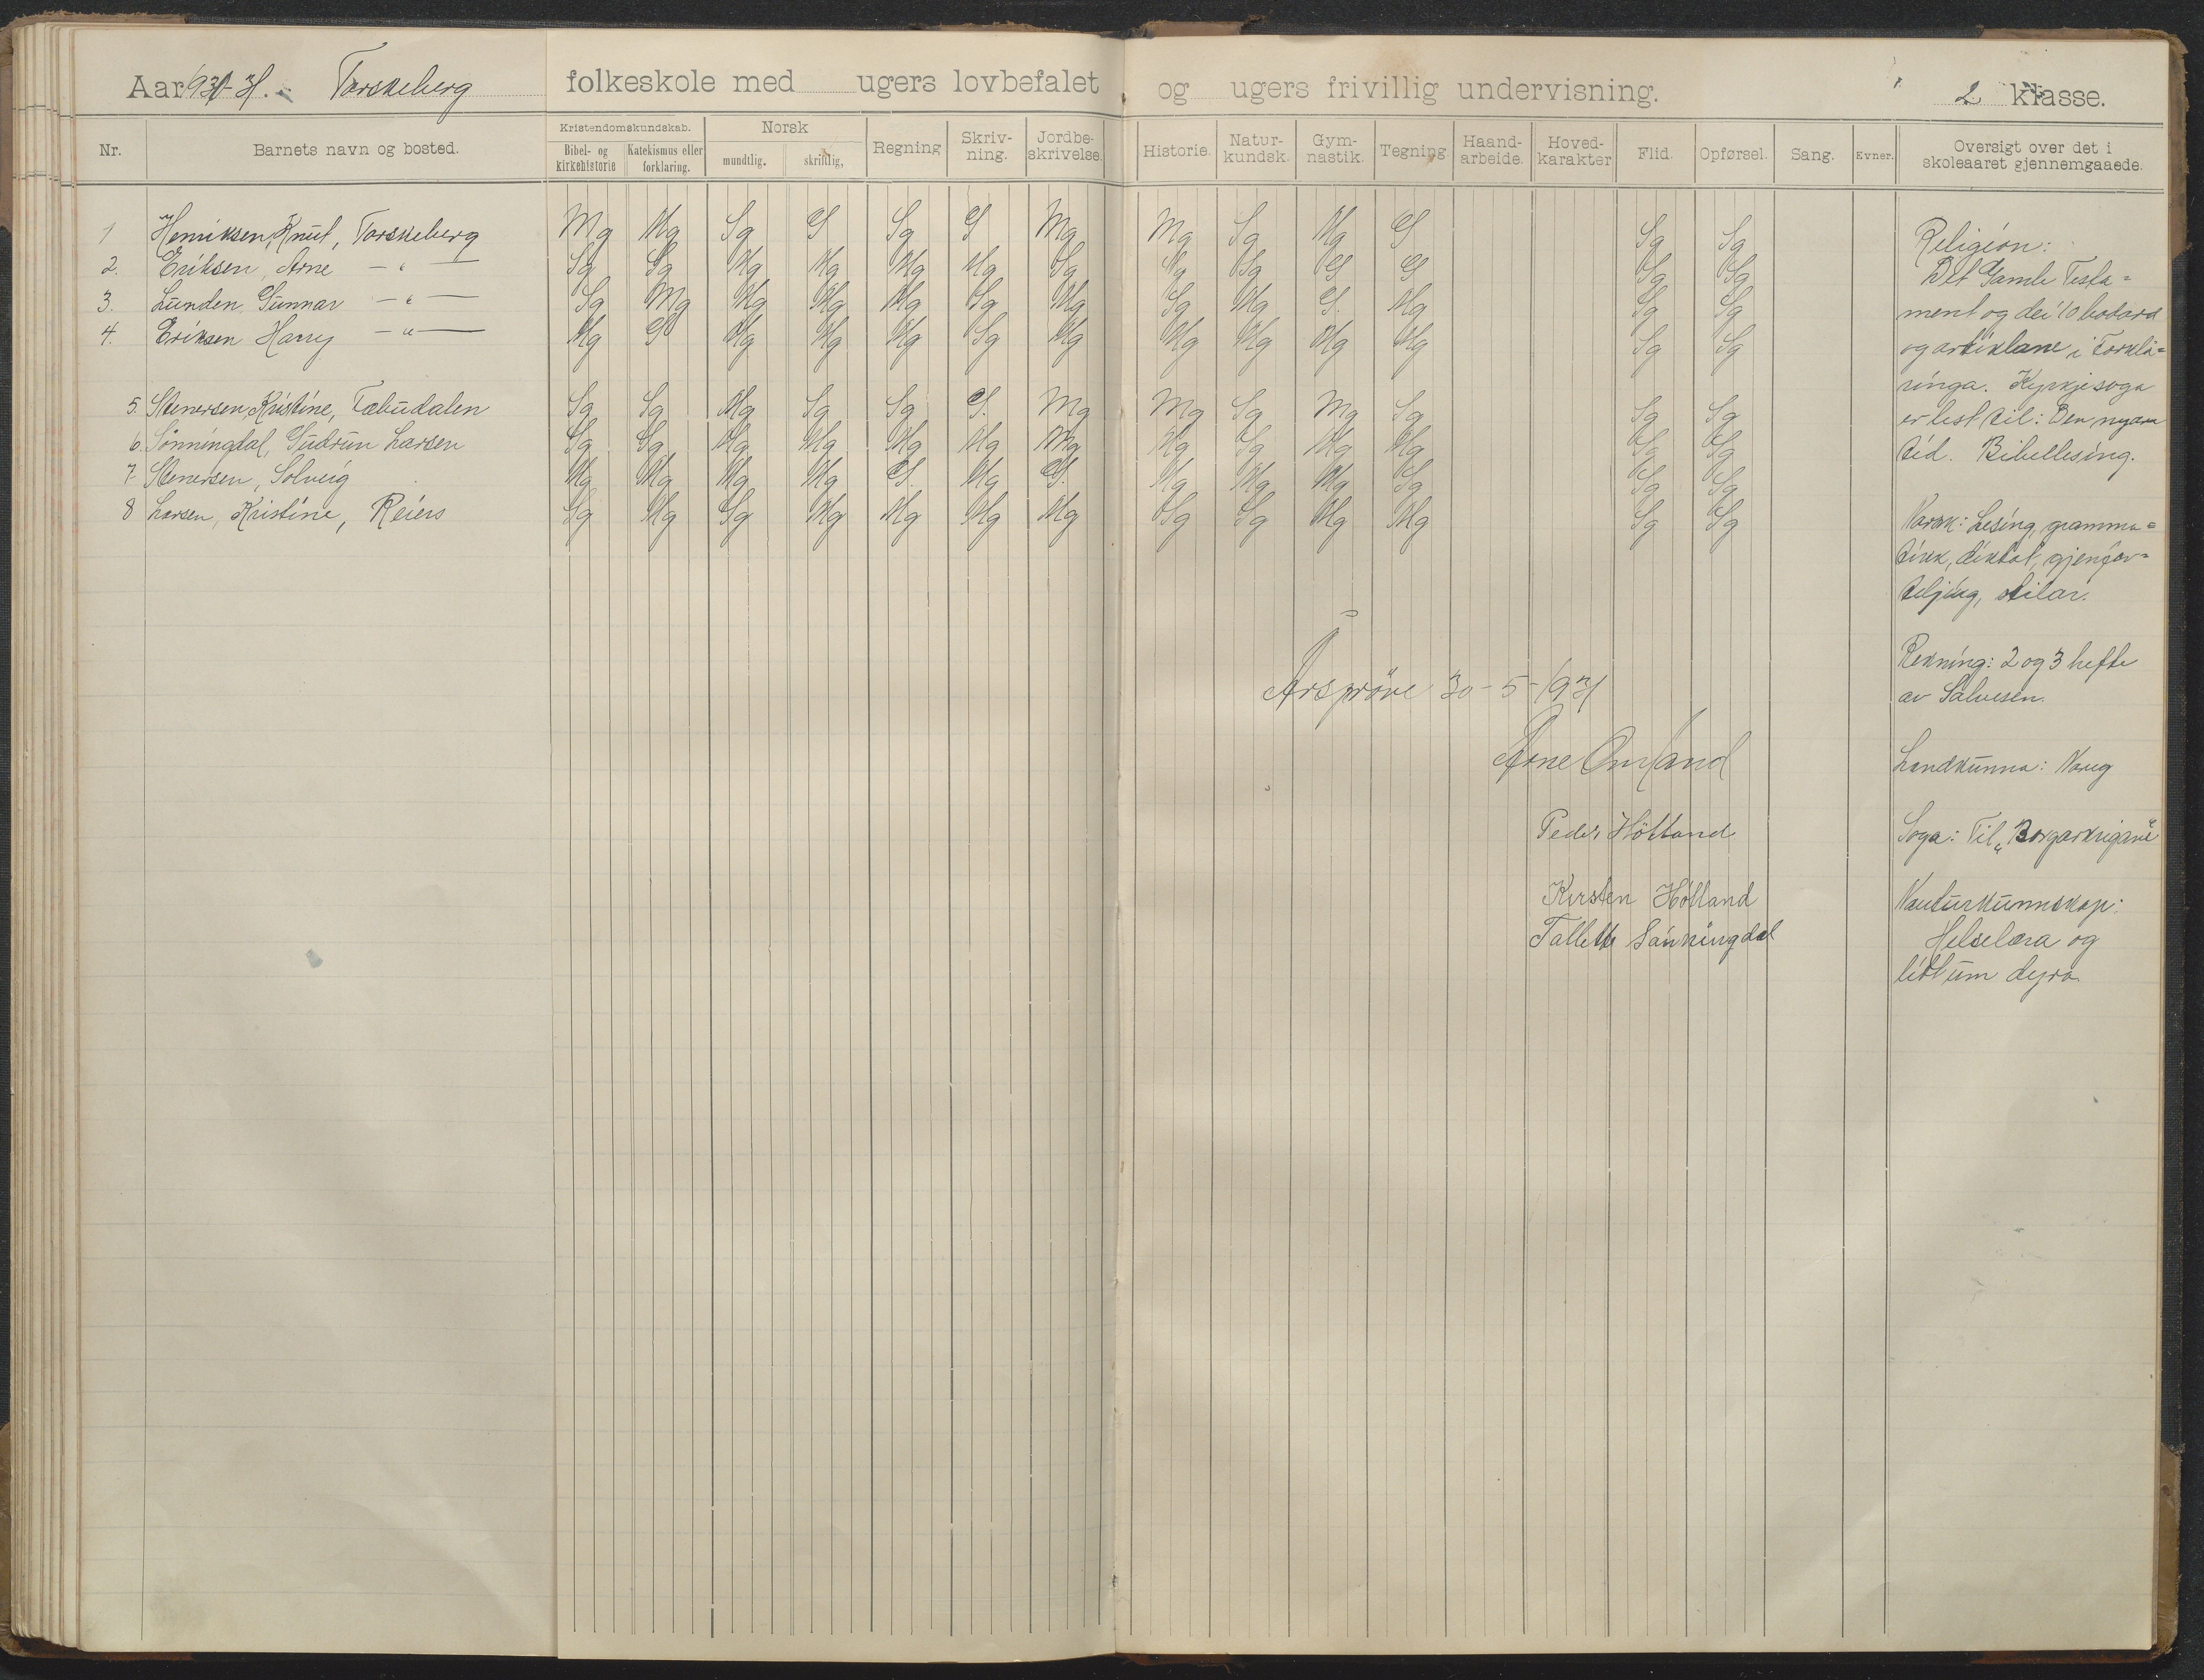 Aar 1930-31. Torskeberg folkeskole med ugers lovbefalet og ugers frivillig undervisning. 2 klasse.
Nr. Barnets navn og bosted. Kristendomskundskab. Bibel- og kirkehistorie Katekismus eller forklaring. Norsk mundtlig. skriftlig, Regning Skriv-ning. Jordbe-skrivelse. Historie. Natur-kundsk. Gym-nastik. Tegning. Haand-arbeide. Hoved-karakter Flid. Opførsel. Sang. Evner. Oversigt over det i skoleaaret gjennemgaaede.
1 Henriksen, Knut, Torskeberg Mg Mg Sg G Sg G Mg Mg Sg Mg G Sg Sg
2. Eriksen, Arne — " — Sg Sg Mg Mg Mg Mg Sg Mg Sg G G Sg Sg
3. Lunden, Gunnar — " — Sg Mg Mg Mg Mg Sg Mg Sg Mg G. Mg Sg Sg
4. Eriksen Harry — " — Mg G Mg Mg Mg Sg Mg Mg Mg Mg Mg Sg Sg
5. Stenersen, Kristine, Tabudalen Sg Sg Mg Sg Sg G. Mg Mg Sg Mg Sg Sg Sg
6. Sønningdal, Gudrun Larsen Sg Sg Mg Mg Mg Mg Mg Mg Sg Mg Mg Sg Sg
7. Stenersen, Solveig Mg Mg Mg Mg G. Mg G. Mg Mg Mg Sg Sg Sg
8 Larsen, Kristine, Reiers Sg Mg Sg Mg Mg Mg Mg Sg Sg Mg Mg Sg Sg
Årsprøve 30-5-1931
Arne Omland
Peder Høiland
Kirsten Høiland
Tallette Sønningdal
Religion:
Det Gamle Testa=
ment og dei 10 bodord
og artiklane i Forklå=
ringa. Kyrkjesoga
er lest til: Den nyare
tid. Bibellesing.
Norsk: Lesing, gramma=
tikk, diktat, gjenfor=
teljing, stilar.
Rekning: 2 og 3 hefte
av Salvesen.
Landkunna: Noreg
Soga: Til „Borgarkrigane"
Nauturkunnskap:
Helselæra og
litt um dyra